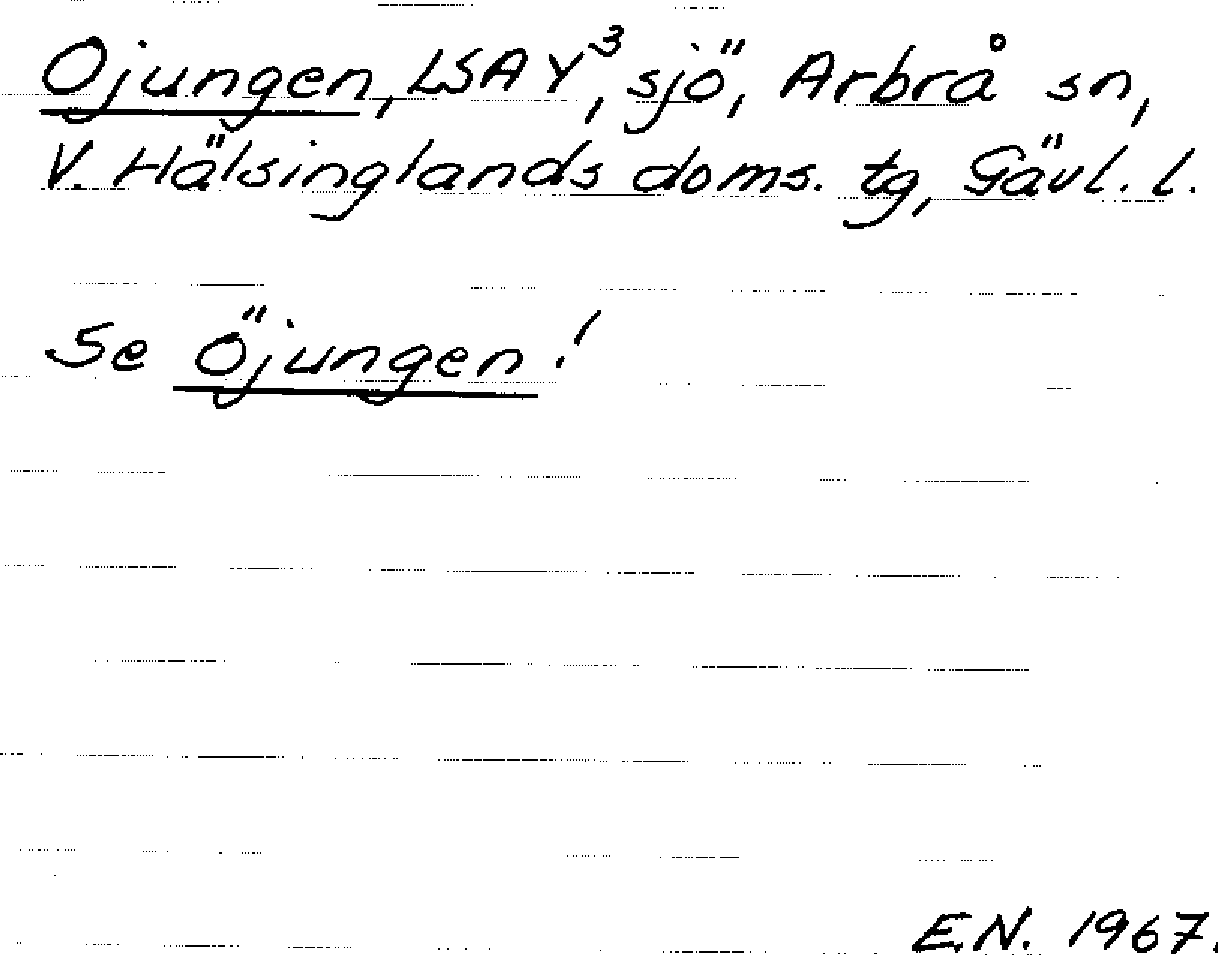 Ojungen, LSA Y³, sjö, Arbrå sn,
V. Hälsinglands doms. tg, Gävl. l.
Se Öjungen!
E.N. 1967.